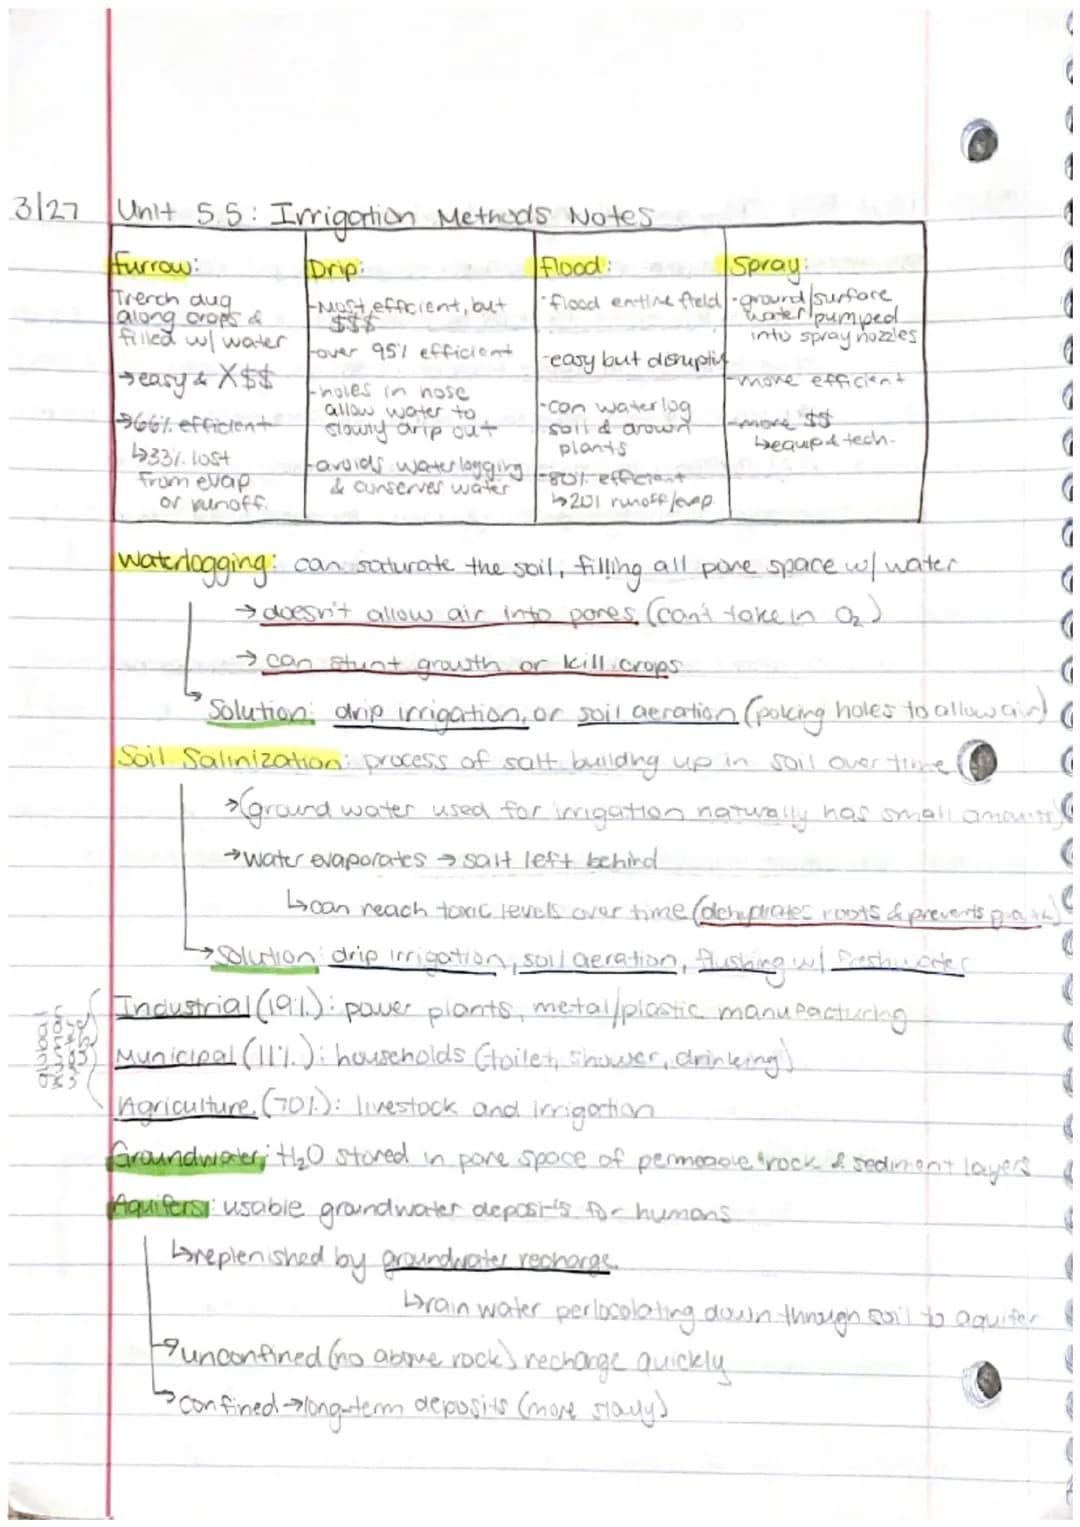 3/27 Unit 5.5: Irrigation Methods Notes
furrow:
Trench dug
along crops &
filled w/ water
→easy & X$$
→66% efficient
↳33% lost
from evap
or runoff.
Drip:
-Most efficient, but
$$$
-over 95% efficient
-holes in hose
allow water to
slowly drip out
-avoids waterlogging
& conserves water
flood:
-flood entire field
-easy but disruptiv
-can waterlog
soil & drown
plants
-80% efficient
↳20% runoff/evap
Spray:
-ground/surface
water pumped
into spray nozzles
-more efficient
-more $$
↳equip & tech.
Waterlogging: can saturate the soil, filling all pore space w/ water
→doesn't allow air into pores (can't take in O₂)
→can stunt growth or kill crops
Solution: drip irrigation, or soil aeration (poking holes to allow air)
Soil Salinization: process of salt building up in soil over time
→(ground water used for irrigation naturally has small amounts)
→water evaporates → salt left behind
↳can reach toxic levels over time (dehydrates roots & prevents
→Solution: drip irrigation, soil aeration, flushing w/ freshwater
Industrial (19%): power plants, metal/plastic manufacturing
Municipal (11%): households (toilet, shower, drinking)
Agriculture (70%): livestock and irrigation
Groundwater: H₂O stored in pore space of permeable rock & sediment layers
Aquifers: usable groundwater deposits for humans
↳replenished by groundwater recharge
↳rain water perlocolating down through soil to aquifer
→unconfined (no above rock) recharge quickly
→confined→long-term deposits (more slowly)